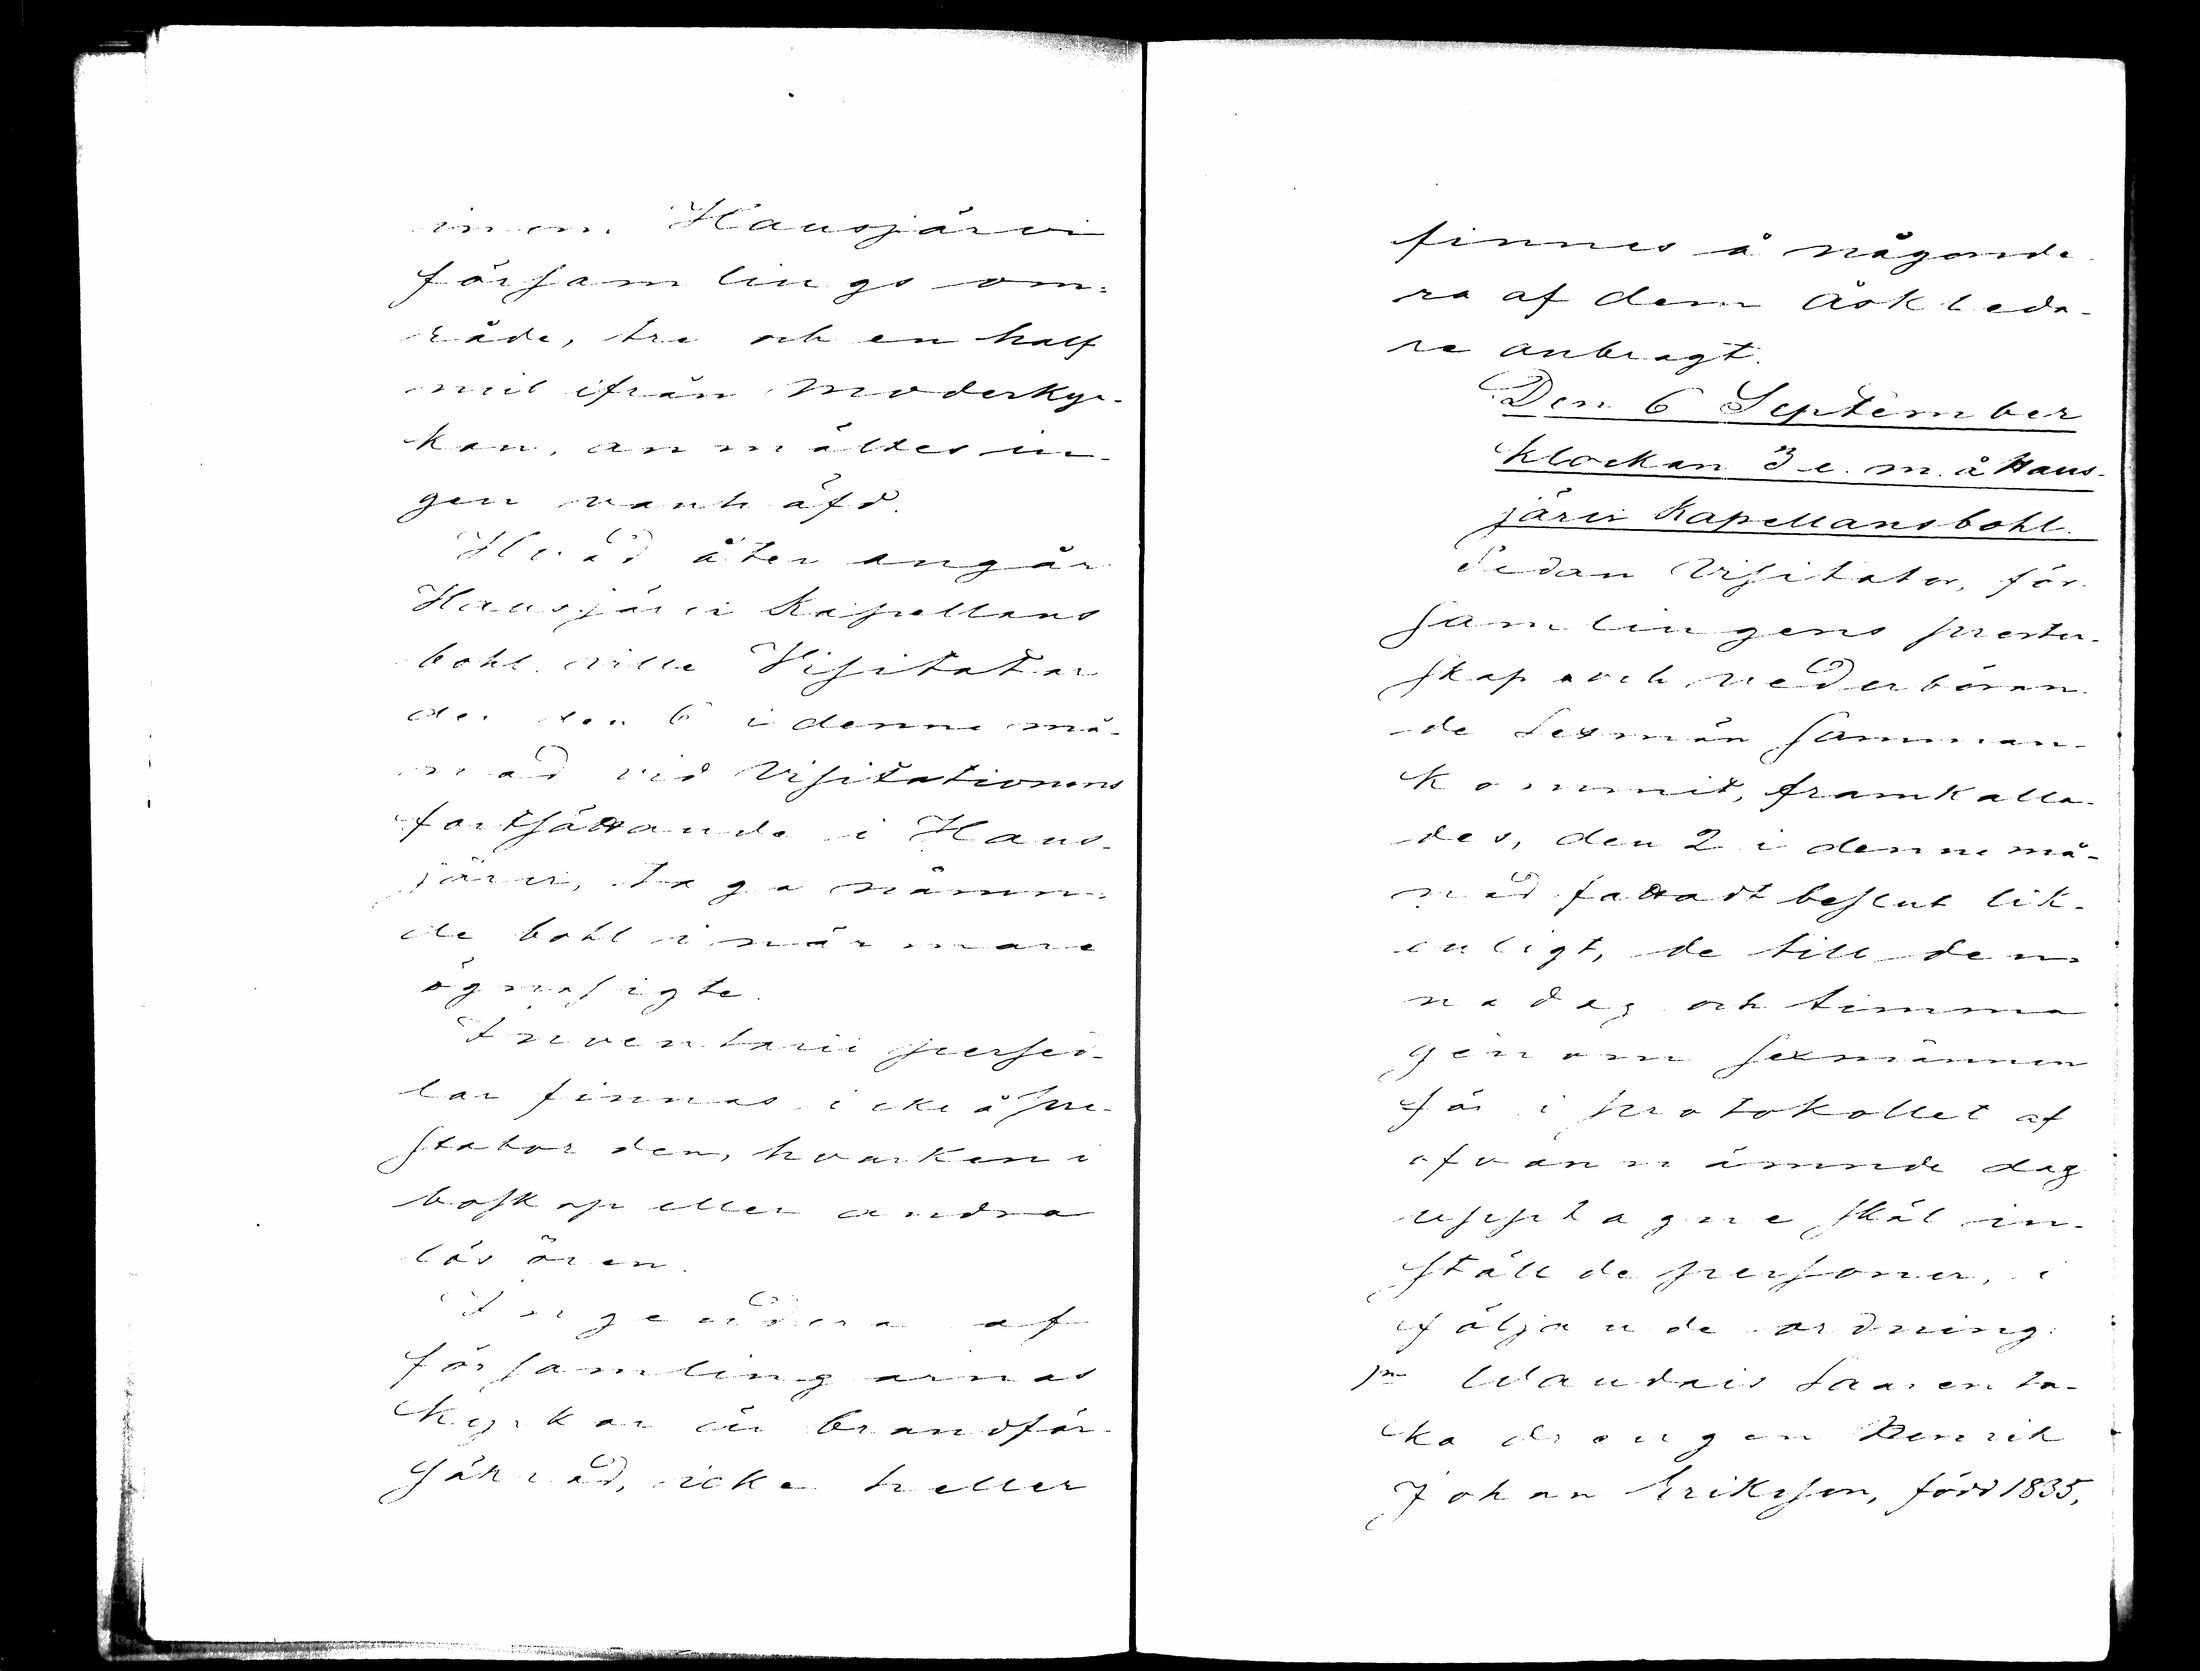 inom Hausjärvi
församlings om=
råde, tre och en half
mil ifrån Moderkyr-
kan, anmältes in-
gen vanhäfd.
Hvad åter angår
Hausjärvi Kapellans
bohl, ville Visitator
der den 6 i denne må-
nad vid Visitationens
fortsättande i Haus-
järvi, taga nämn=
de bohl i närmare
ögnasigte.
Inventarii persed-
lar finnas icke å pre-
staborden, hvarken i
boskap eller andra
lösören.
Ingendera af
församlingarnas
Kyrkor är brandför-
säkrad, icke heller
finnes å någonde-
ra af dem Åskleda-
re anbragt.
Den 6 September
klockan 3 e. m. å Haus-
järvi Kapellansbohl.
Sedan Visitator, för-
samlingens prester-
skap och vederböran-
de Sexmän samman-
kommit, framkalla-
des, den 2 i denne må-
nad fattadt beslut lik-
enligt, de till den-
na dag och timma
genom sexmännen
för i protokollet af
ofvannämnde dag
upptagne skäl in-
ställde personer, i
följande ordning:
1mo Waudais Saarenta-
ka drengen Henrik
Johan Eriksson, född 1835,